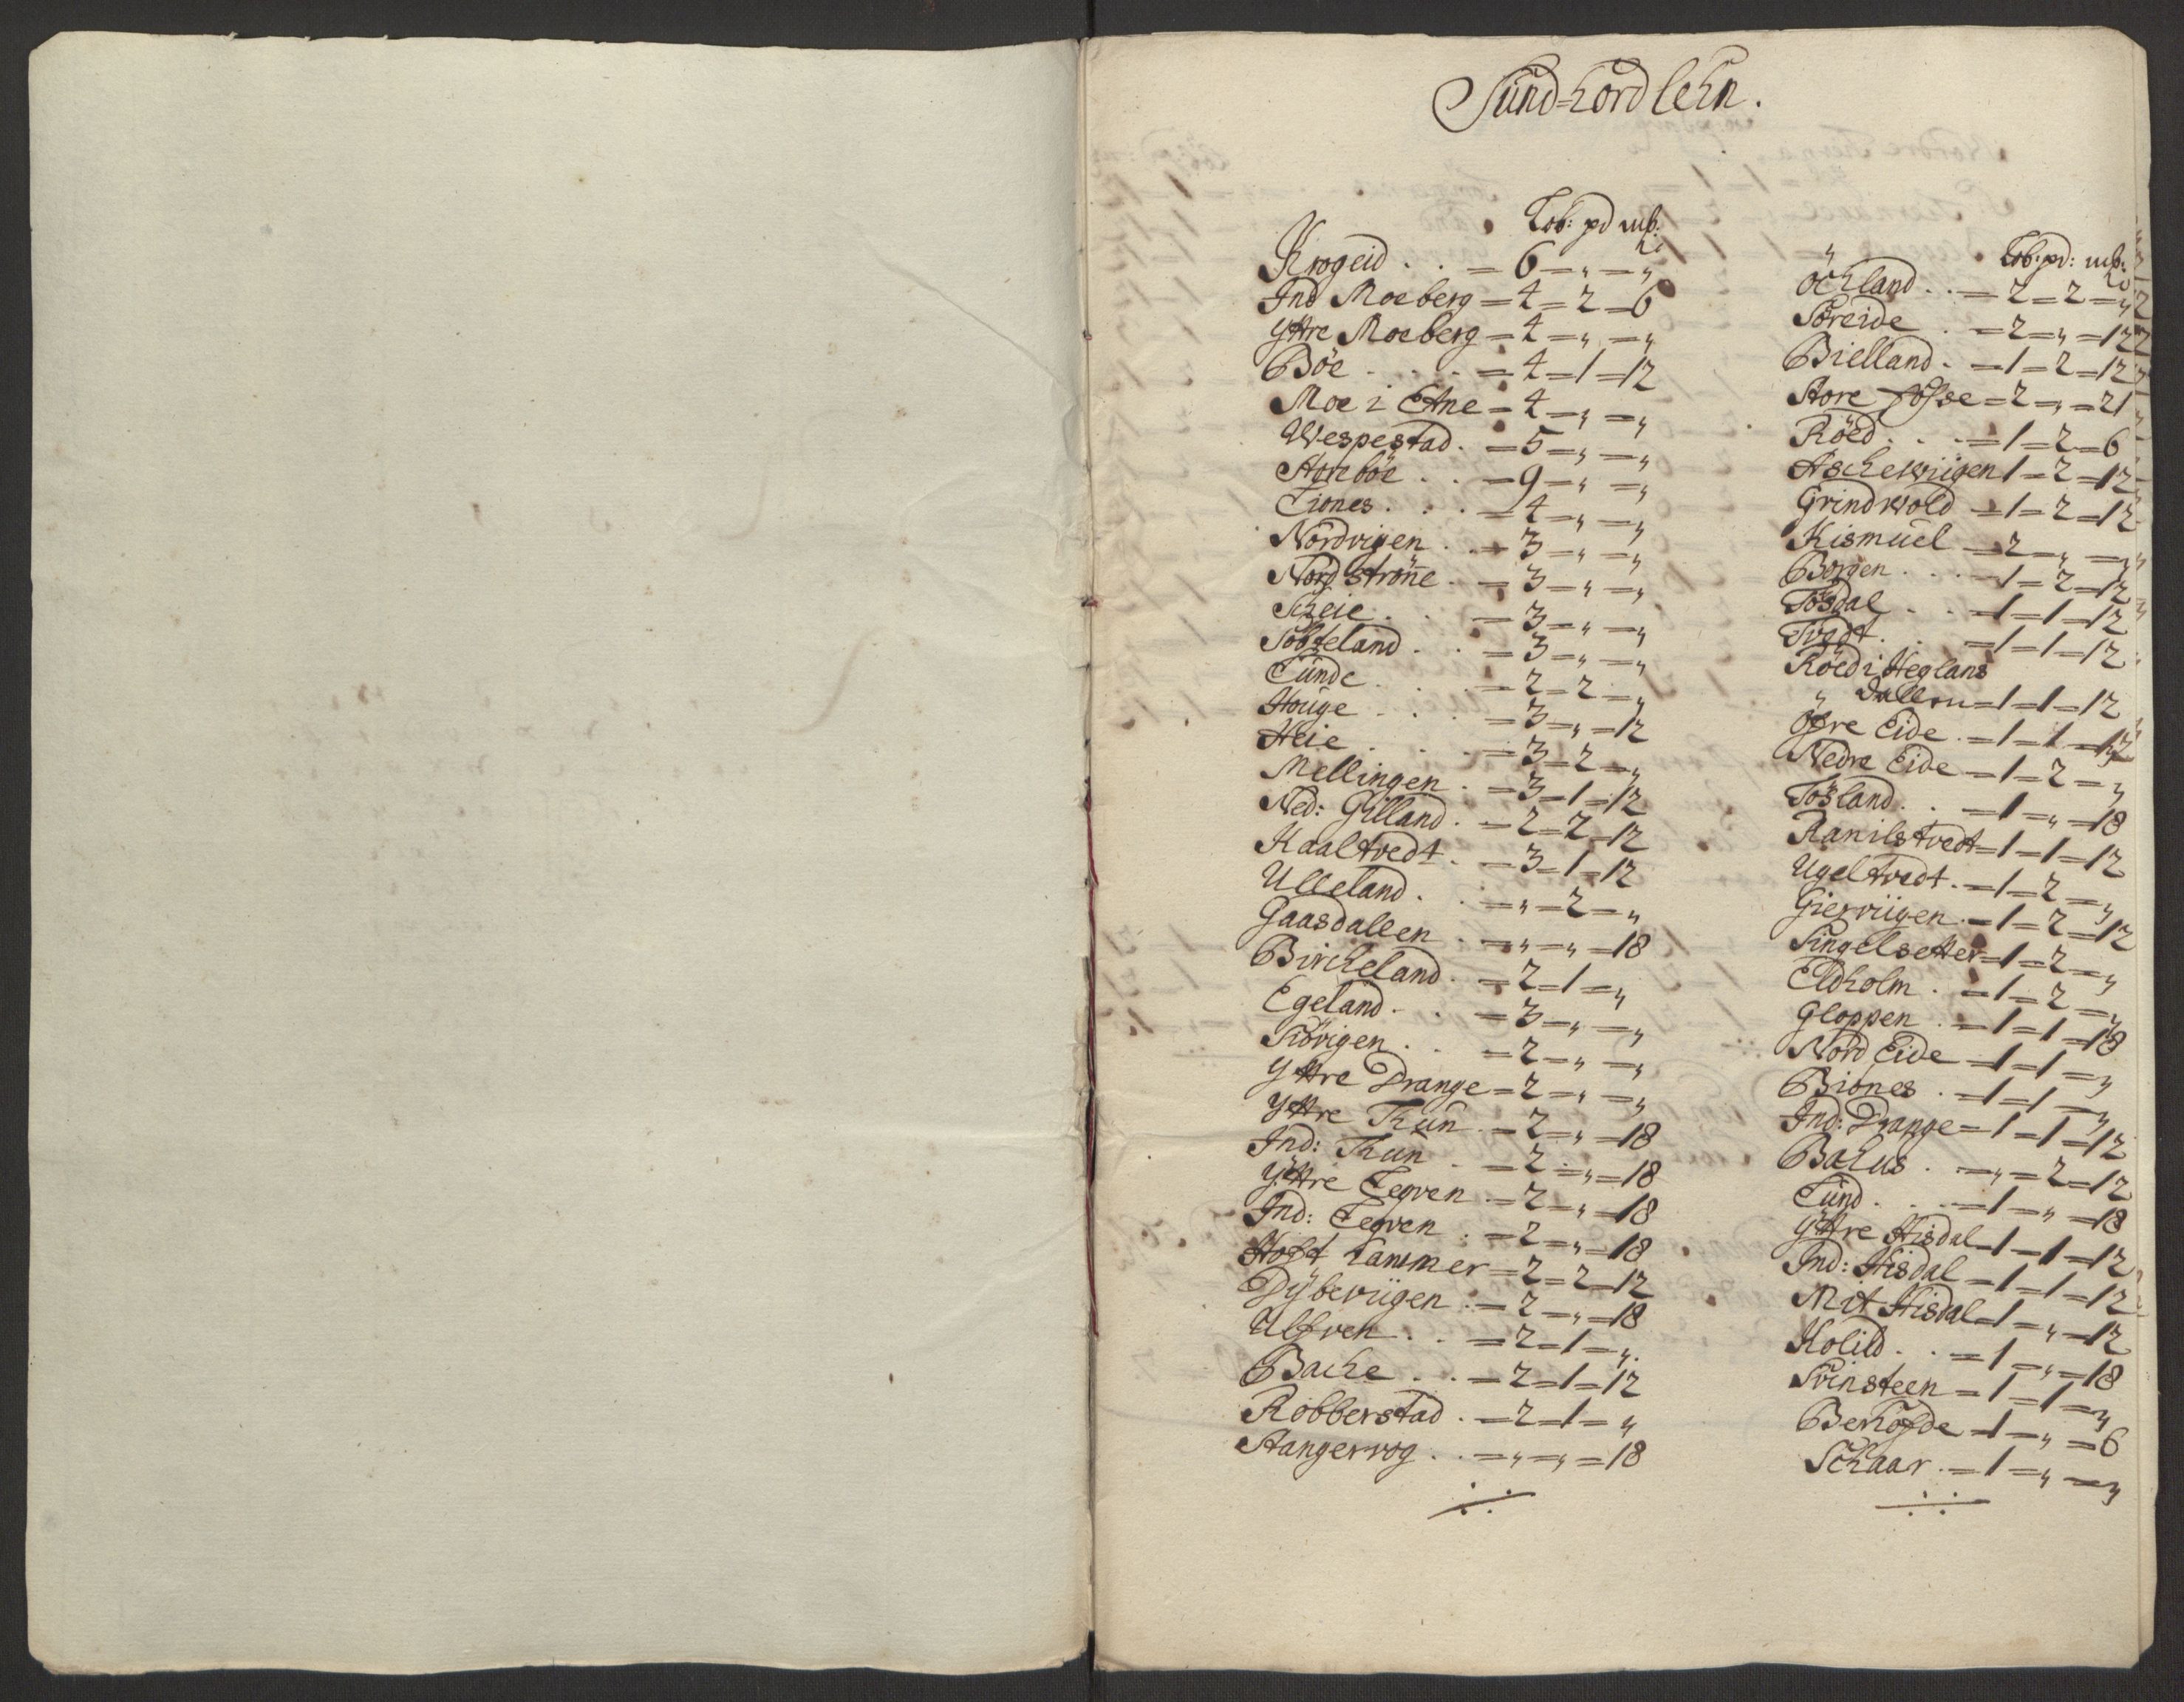 Sünd=hordlehn.
Lob: pd mk:
Krogeid . . = 6 = „ = „
Ind Moeberg = 4 = 2 = 6
Yttre Moeberg = 4 = „ = „
Böe . . . = 4 = 1 = 12
Moe i Etne = 4 = „ = „
Wespestad . = 5 = „ = „
Storeböe . . = 9 = „ = „
Tiones . . . = 4 = „ = „
Nordvigen . . = 3 = „ = „
Nord Ströne . = 3 = „ = „
Scheie . . = 3 = „ = „
Söfteland . . = 3 = „ = „
Lünde . . . = 2 = 2 = „
Houge . . . = 3 = „ = 12
Heie . . . = 3 = 2 = „
Mellingen . = 3 = 1 = 12
Ned: Gilland . = 2 = 2 = 12
Kaaltvedt . = 3 = 1 = 12
Ulleland . . = „ = 2 = „
Gaasdallen . = „ = „ = 18
Bircheland . = 2 = 1 = „
Egeland . . = 3 = „ = „
Siövigen . . = 2 = „ = „
Yttre Drange = 2 = „ = „
Yttre Thun . = 2 = „ = 18
Ind: Thun . = 2 = „ = 18
Yttre Tegven . = 2 = „ = 18
Ind: Tegven . = 2 = „ = 18
Hoft hammer = 2 = 2 = 12
Dybeviigen . = 2 = „ = 18
Ulfven . . = 2 = 1 = „
Bache . . . = 2 = 1 = 12
Robberstad . = 2 = 1 = „
Stangervog . . = „ = „ = 18
„ Lob: pd: mk:
Öchland . . = 2 = 2 = „
Söreide . = 2 = „ = 12
Bielland . = 1 = 2 = 12
Store Fosse = 2 = „ = 21
Röed . . . = 1 = 2 = 6
Aschewiigen 1 = 2 = 12
Grindwold = 1 = 2 = 12
Kismüel = 2 = „ = „
Borgen . . . = 1 = 2 = 12
Tösdal . . = 1 = 1 = 12
Tvedt . . = 1 = 1 = 12
Röed i Heglans
„ dallen = 1 = 1 = 12
Öfre Eide . = 1 = 1 = 12
Nedre Eide = 1 = 2 = „
Tösland . . = 1 = „ = 18
Ranilstvedt = 1 = 1 = 12
Ugeltvedt . = 1 = 2 = „
Gierviigen . = 1 = 2 = 12
Singelsetter = 1 = 2 = „
Eldholm . = 1 = 2 = „
Gloppen . = 1 = 1 = 18
Nord Eide = 1 = 1 = „
Biones . = 1 = 1 = „
Ind: Drange = 1 = 1 = 12
Bahus . = „ = 2 = 12
Lünd . . . = 1 = „ = 18
Yttre Hisdal = 1 = 1 = 12
Ind: Hisdal = 1 = 1 = 12
Mit Hisdal = 1 = „ = 12
Kolild . . = 1 = „ = 18
Svinsteen = 1 = 1 = „
Berhofde = 1 = „ = 6
Schaar . = 1 = „ = „